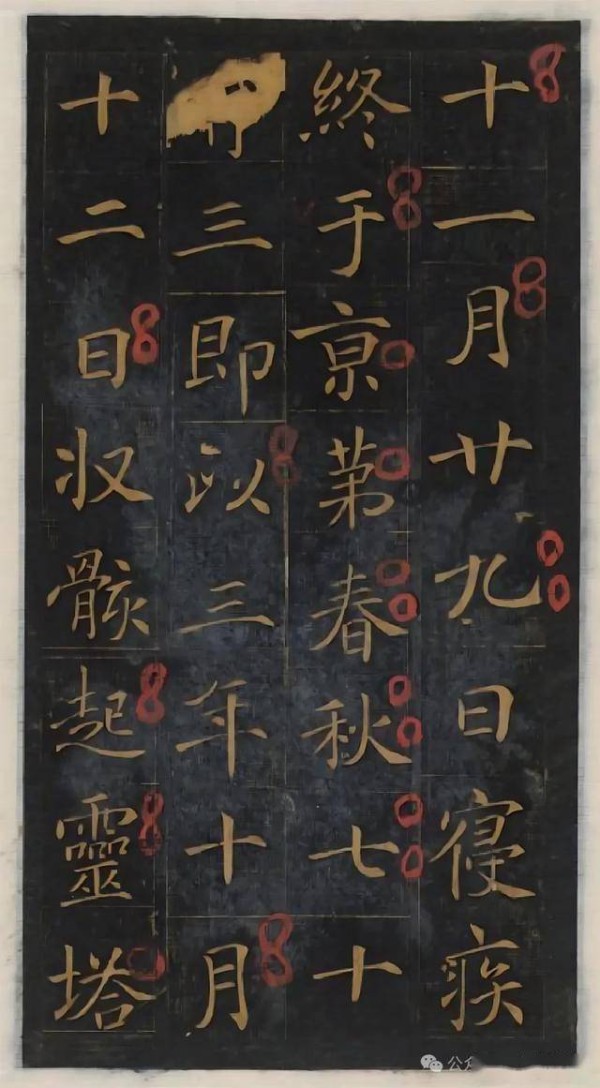 十一月廿九日寑疾
終于亰苐春秋七十
三即以三年十月
十二日収骸起靈塔
公